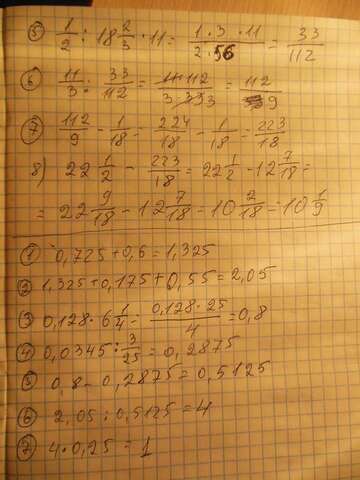 ⑤ 1/2 : 18 2/3 · 11 = 1·3·11/2·56 = 33/112
⑥ 11/3 : 33/112 = 11·112/3·33 3 = 112/9
⑦ 112/9 - 1/18 = 224/18 - 1/18 = 223/18
8) 22 1/2 - 223/18 = 22 1/2 - 12 7/18 =
= 22 9/18 - 12 7/18 - 10 2/18 = 10 1/9
① 0,725 + 0,6 = 1,325
② 1,325 + 0,175 + 0,55 = 2,05
③ 0,128 · 6 1/4 = 0,128·25/4 = 0,8
④ 0,0345 : 3/25 = 0,2875
⑤ 0,8 - 0,2875 = 0,5125
⑥ 2,05 : 0,5125 = 4
⑦ 4 · 0,25 = 1